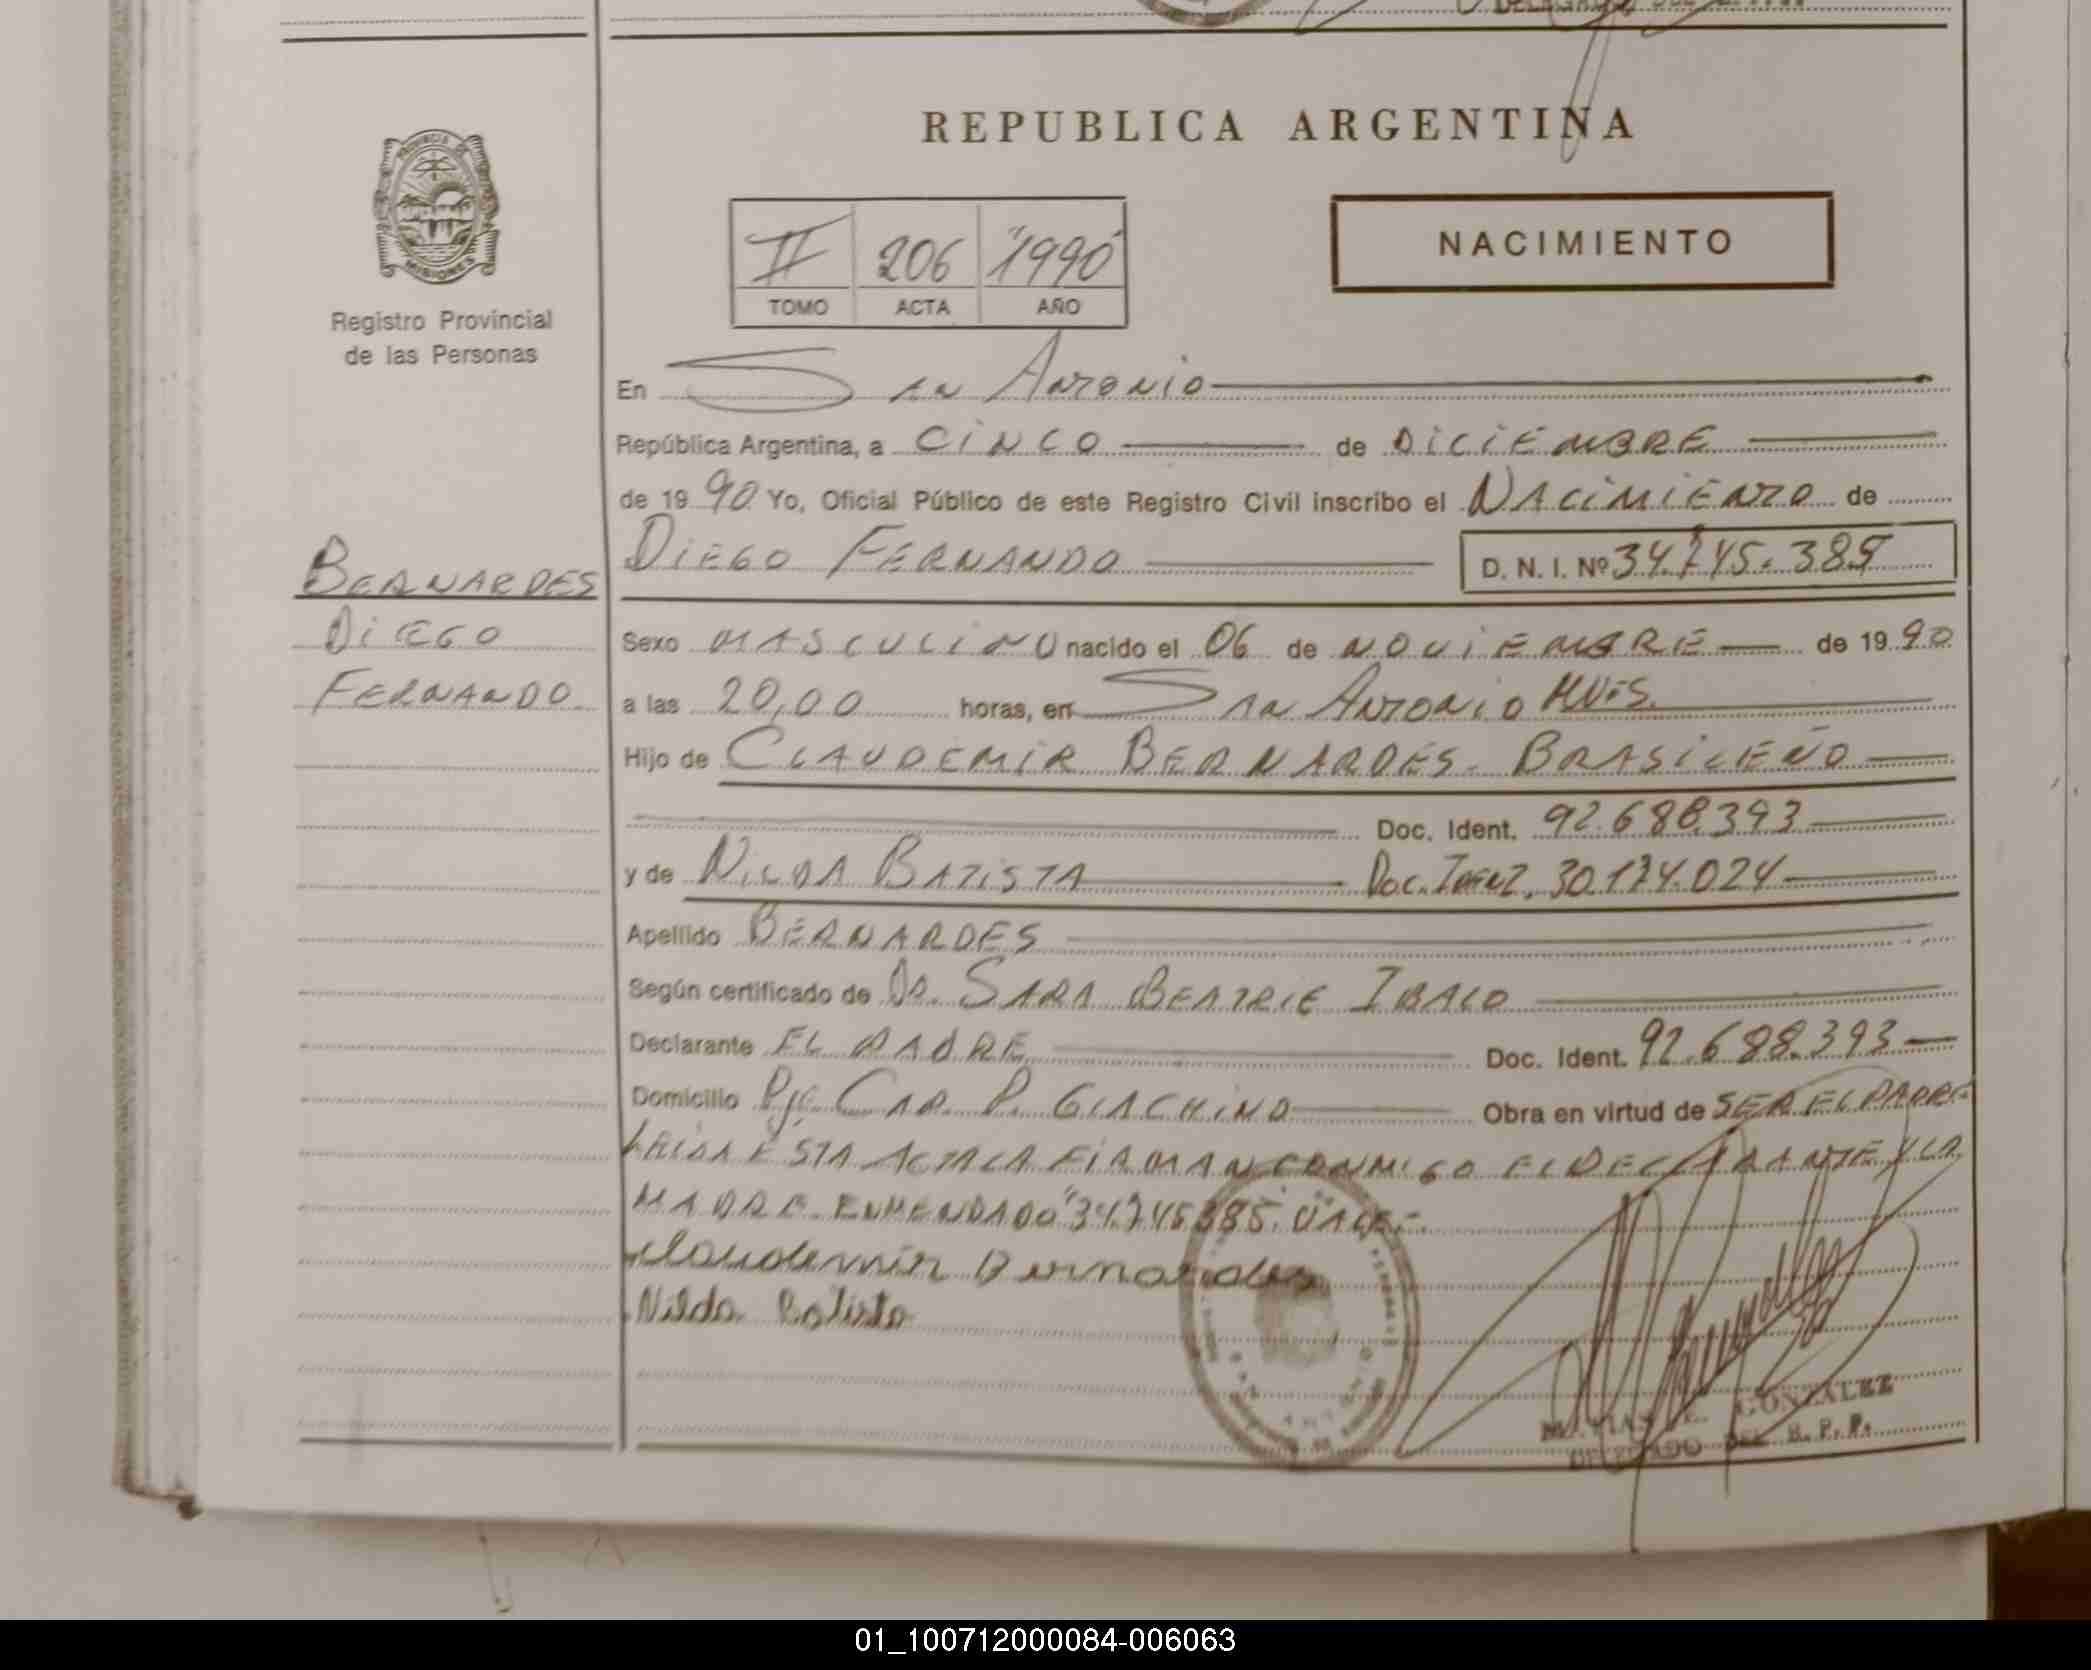 REPUBLICA ARGENTINA
PROVINCIA DE
MISIONES
Registro Provincial
de las Personas
NACIMIENTO
II 206 "1990"
TOMO ACTA AÑO
En San Antonio
República Argentina, a CINCO de DICIEMBRE
de 19 90 Yo, Oficial Público de este Registro Civil inscribo el NACIMIENTO de
DIEGO FERNANDO D. N. I. Nº 34.745.385
BERNARDES
DIEGO
FERNANDO
Sexo MASCULINO nacido el 06 de NOVIEMBRE de 19 90
a las 20,00 horas, en SAN ANTONIO MNES.
Hijo de CLAUDEMIR BERNARDES. BRASILEÑO
Doc. Ident. 92.688.393
y de NILDA BATISTA Doc. IDENT. 30.174.024
Apellido BERNARDES
Según certificado de DR. SARA BEATRIE IBALO
Declarante EL PADRE Doc. Ident. 92.688.393
Domicilio Pje. CAP. P. GIACHINO Obra en virtud de SER EL PADRE
LEIDA ESTA ACTA LA FIRMAN CONMIGO EL DECLARANTE Y LA
MADRE. ENMENDADO "34.745385. VALE.-
Claudemir Bernardes
Nilda Batista
MATIAS GONZALEZ
DELEGADO DEL R. P. P.
01_100712000084-006063